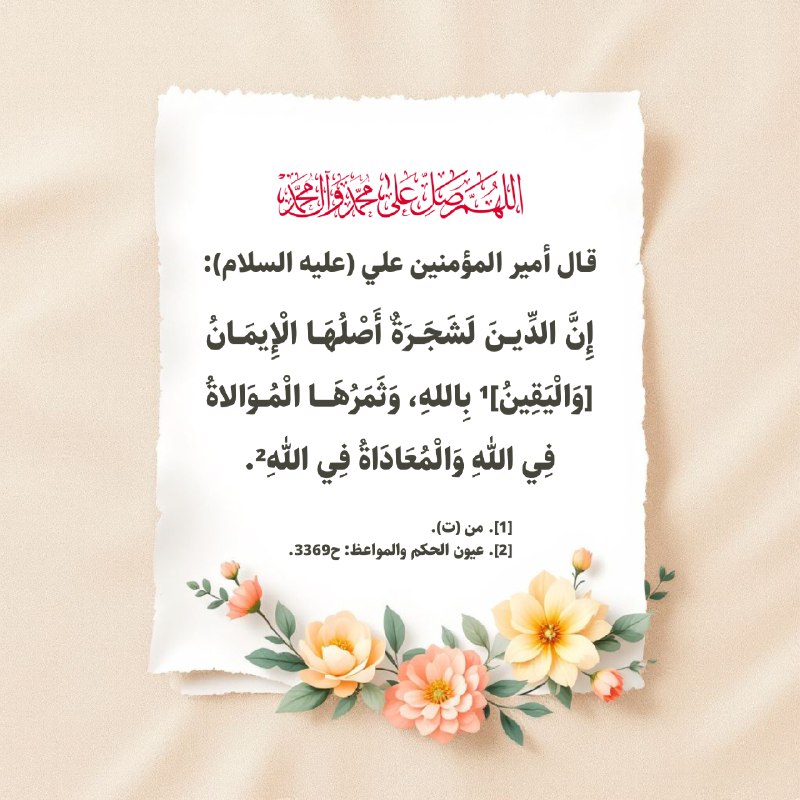 اللهم صل على محمد وآل محمد
قال أمير المؤمنين علي (عليه السلام):
إِنَّ الدِّيـنَ لَشَجَـرَةٌ أَصْلُهَـا الْإِيمَـانُ
[وَالْيَقِينُ]¹ بِاللهِ، وَثَمَرُهَــا الْمُـوَالاةُ
فِي اللهِ وَالْمُعَادَاةُ فِي اللهِ².
[1]. من (ت).
[2]. عيون الحكم والمواعظ: ح3369.